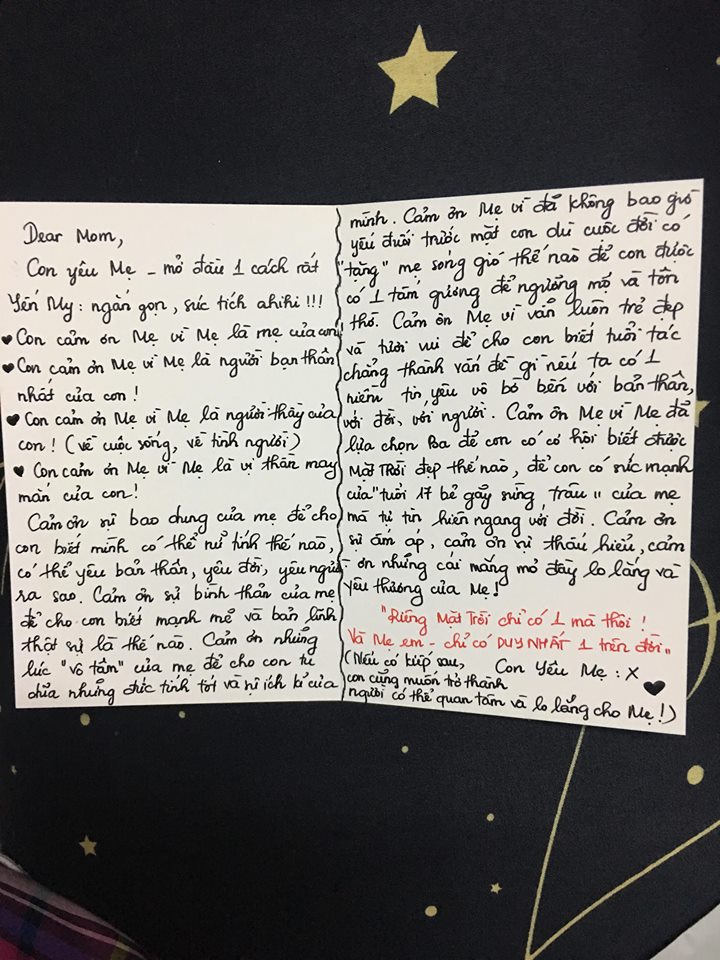 Dear Mom,
Con yêu Mẹ _ mở đầu 1 cách rất
Yến My : ngắn gọn, súc tích ahihi !!!
♥ Con cảm ơn Mẹ vì Mẹ là mẹ của con!
♥ Con cảm ơn Mẹ vì Mẹ là người bạn thân
nhất của con !
♥ Con cảm ơn Mẹ vì Mẹ là người thầy của
con ! (về cuộc sống, về tình người)
♥ Con cảm ơn Mẹ vì Mẹ là vị thần may
mắn của con!
Cảm ơn sự bao dung của mẹ để cho
con biết mình có thể nữ tính thế nào,
có thể yêu bản thân, yêu đời, yêu người
ra sao. Cảm ơn sự bình thản của mẹ
để cho con biết mạnh mẽ và bản lĩnh
thật sự là thế nào. Cảm ơn những
lúc "vô tâm" của mẹ để cho con tự
chĩa những đức tính tốt và sự ích kỉ của
mình. Cảm ơn Mẹ vì đã không bao giờ
yếu đuối trước mặt con dù cuộc đời có
"tặng" mẹ sóng gió thế nào để con được
có 1 tấm gương để ngưỡng mộ và tôn
thờ. Cảm ơn Mẹ vì vẫn luôn trẻ đẹp
và tươi vui để cho con biết tuổi tác
chẳng thành vấn đề gì nếu ta có 1
niềm tin, yêu vô bờ bến với bản thân,
với đời, với người. Cảm ơn Mẹ vì Mẹ đã
lựa chọn Ba để con có cơ hội biết được
Mặt Trời đẹp thế nào, để con có sức mạnh
của "tuổi 17 bẻ gãy sừng trâu" của mẹ
mà tự tin hiên ngang với đời. Cảm ơn
sự ấm áp, cảm ơn sự thấu hiểu, cảm
ơn những cái mắng mỏ đầy lo lắng và
yêu thương của Mẹ!
"Riêng Mặt Trời chỉ có 1 mà thôi !
Và Mẹ em - chỉ có DUY NHẤT 1 trên đời"
(Nếu có kiếp sau, Con Yêu Mẹ : X
con cũng muốn trở thành
người có thể quan tâm và lo lắng cho Mẹ !) ♥